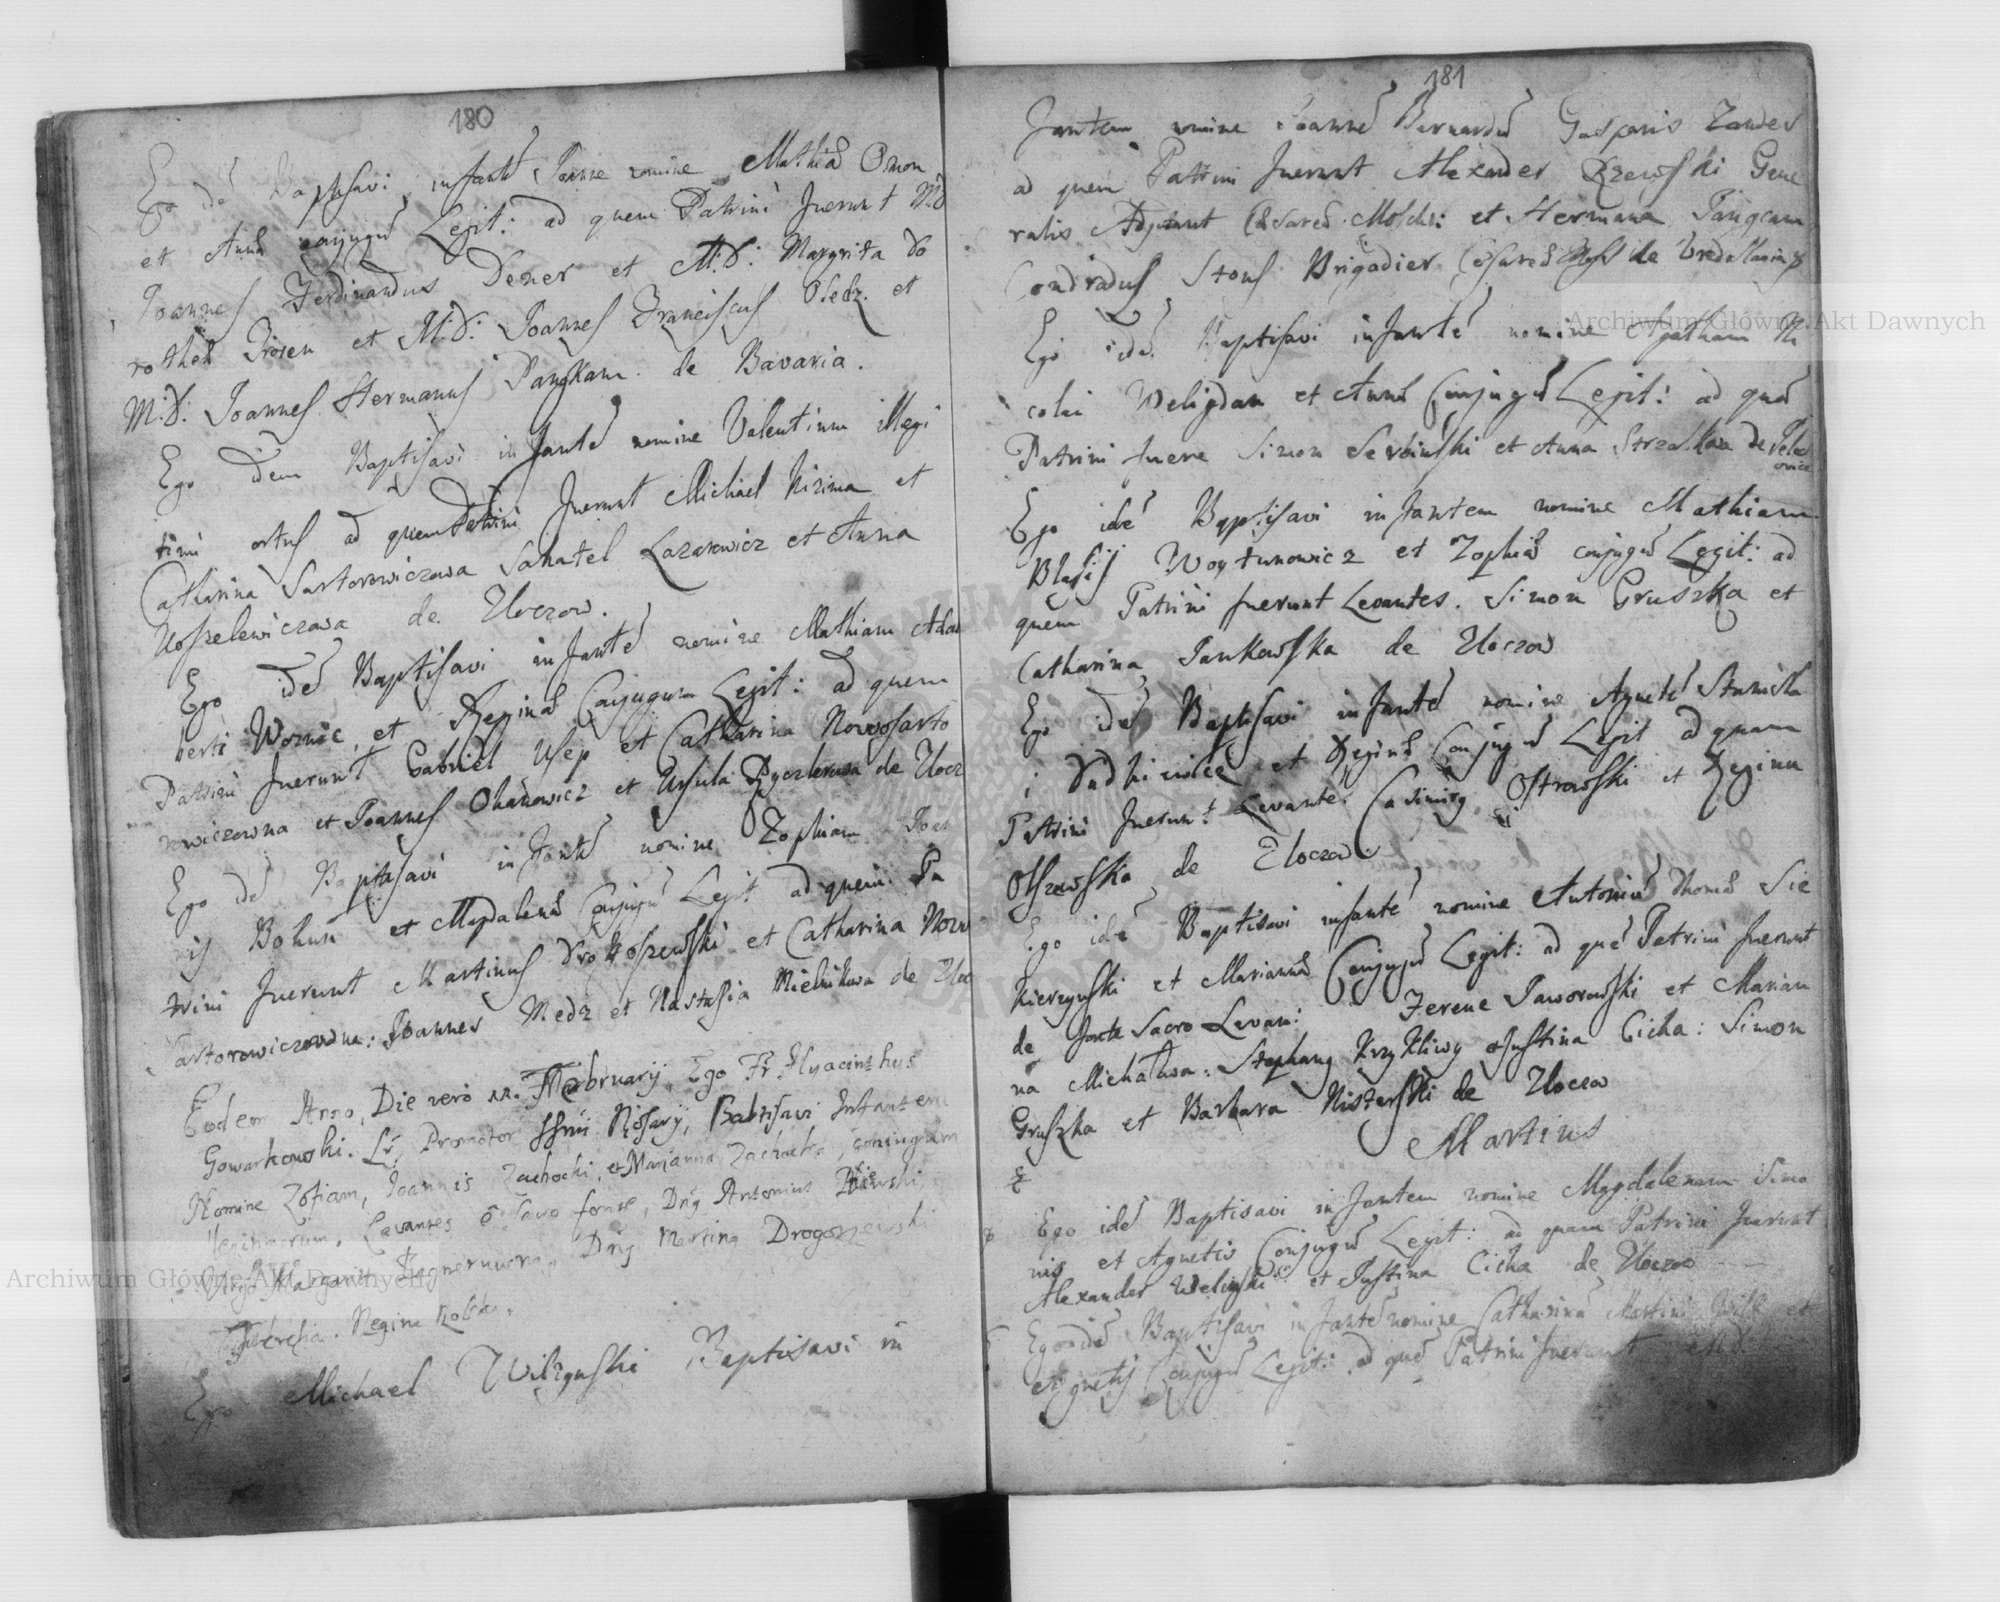 180
Ego idē Baptisavi infantē nomine Mathiā
et Annā conjugū Legit: ad quem Patrini fuerunt M:D
Joannes Ferdinandus Dener et M:D: Margrita Do
rothea et M:D: Joannes Franciscus et
M:D: Joannes Hermanus Pangkam de Bavaria.
Ego idem Baptisavi infantē nomine Valentinum illegi
timi ortus ad quem Patrini fuerunt Michael et
Catharina Sartorowiczowa Łazarewicz et Anna
de Złoczow.
Ego idē Baptisavi infantē nomine Mathiam Adal
berti Woznic et Reginā Conjugum Legit: ad quem
Patrini fuerunt Gabriel et Catharina Nowosarto
rowiczowna et Joannes Ohanowicz et Ursula de Złocz
Ego idē Baptisavi infantē nomine Zophiam Joan
nis Bohun et Magdalenā Conjugū Legit ad quem Pa
trini fuerunt Martinus Drogoszewski et Catharina Now
sartorowiczowna: Joannes Medz et Nastasia Mielnikowa de Złoc
Eodem Anno, Die vero Februarij, Ego Fr. Hyacinthus
Gowarkowski. Promotor SSmi Rosarij, Babtisavi Infantem
Nomine Zofiam, Joannis Zachocki, et Marianna Zachocka, coniugum
legitimorum, Levantes è sacro fonte, Dnus Antonius
Virgo Margarita Dnus Martinus Drogoszewski
Theresia. Regina
Ego Michael Wilzynski Baptisavi in
181
fantem nomine Joannē Bernardū Gasparis Zander
ad quem Patrini fuerunt Alexander Rzewski Gene
ralis Adjutant Cæsareæ Moschi: et Hermana Pangcam
Condradus Stows Brigadier Cæsareæ de
Ego idē Baptisavi infantē nomine Agatham Ni
colai Weligdan et Annā Conjugū Legit: ad quā
Patrini fuere Simon Serbinski et Anna de
Ego idē Baptisavi infantem nomine Mathiam
Blasij Woytunowicz et Zophiā conjugū Legit: ad
quem Patrini fuerunt Levantes. Simon Gruszka et
Catharina Jankowska de Złoczow
Ego idē Baptisavi infantē nomine Agnetē Stanisla
i et Reginā Conjugū Legit ad quam
Patrini fuerunt Levantes Casimirg Ostrowski et Regina
Olszewska de Złoczow.
Ego idē Baptisavi infantē nomine Antoniū Thomā Sie
kierzynski et Mariannā Conjugū Legit: ad quē Patrini fuerunt
de fonte Sacro Levan: Ferenc Jaworowski et Marian
na Michałowa: Stephang Krzykliwy et Justina Cicha: Simon
Gruszka et Barbara de Złoczow
Martius
Ego idē Baptisavi infantem nomine Magdalenam Simo
nis et Agnetis Conjugū Legit: ad quam Patrini fuerunt
Alexander Welinski et Justina Cicha de Złoczow
Ego idē Baptisavi infantē nomine Catharinā Martini Wilk et
Agnetis Conjugū Legit: ad quā Patrini fuerunt
Archiwum Główne Akt Dawnych
Archiwum Główne Akt Dawnych